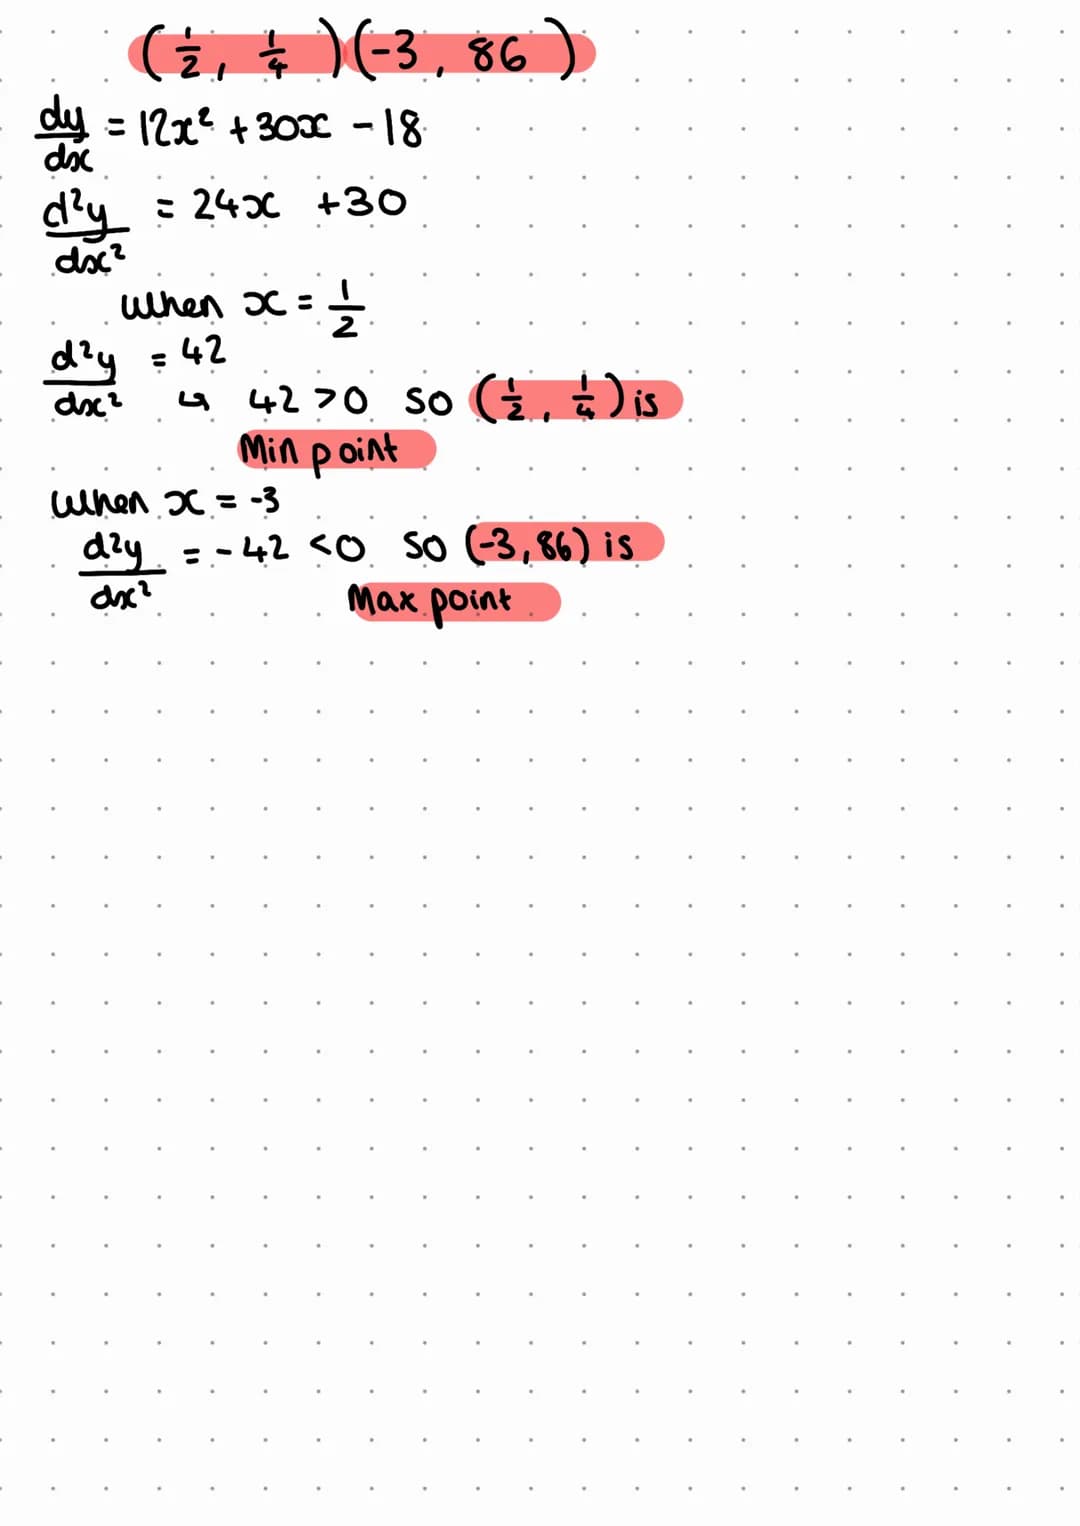 (1/2, 1/4) (-3, 86)
dy/dx = 12x² + 30x - 18
d²y/dx² = 24x + 30
when x = 1/2
d²y/dx² = 42
↳ 42 > 0 so (1/2, 1/4) is
Min point
when x = -3
d²y/dx² = -42 < 0 so (-3, 86) is
Max point